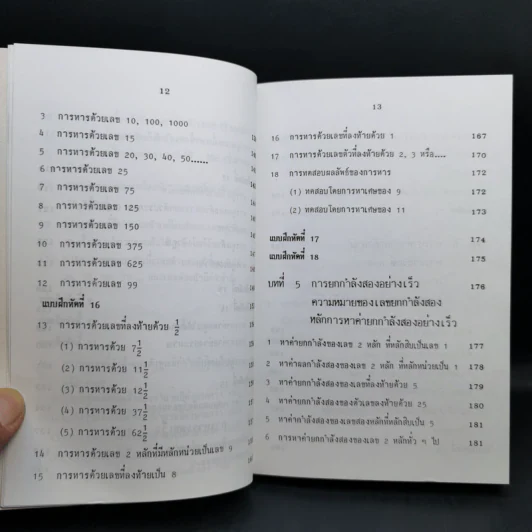 12
3 การหารด้วยเลข 10, 100, 1000
4 การหารด้วยเลข 15
5 การหารด้วยเลข 20, 30, 40, 50......
6 การหารด้วยเลข 25
7 การหารด้วยเลข 75
8 การหารด้วยเลข 125
9 การหารด้วยเลข 150
10 การหารด้วยเลข 375
11 การหารด้วยเลข 625
12 การหารด้วยเลข 99
แบบฝึกหัดที่ 16
13 การหารด้วยเลขที่ลงท้ายด้วย 1/2
(1) การหารด้วย 7 1/2
(2) การหารด้วย 11 1/2
(3) การหารด้วย 12 1/2
(4) การหารด้วย 37 1/2
(5) การหารด้วย 62 1/2
14 การหารด้วยเลข 2 หลักที่มีหลักหน่วยเป็นเลข 9
15 การหารด้วยเลขที่ลงท้ายเป็น 8
13
16 การหารด้วยเลขที่ลงท้ายด้วย 1 167
17 การหารด้วยเลขตัวที่ลงท้ายด้วย 2, 3 หรือ.... 170
18 การทดสอบผลลัพธ์ของการหาร 172
(1) ทดสอบโดยการหาเศษของ 9 172
(2) ทดสอบโดยการหาเศษของ 11 173
แบบฝึกหัดที่ 17 174
แบบฝึกหัดที่ 18 175
บทที่ 5 การยกกำลังสองอย่างเร็ว 176
ความหมายของเลขยกกำลังสอง
หลักการหาค่ายกกำลังสองอย่างเร็ว
1 หาค่ายกกำลังสองของเลข 2 หลัก ที่หลักสิบเป็นเลข 1 177
2 หาค่ายกกำลังสองของเลข 2 หลัก ที่หลักหน่วยเป็น 1 178
3 หาค่ายกกำลังสองของเลขที่ลงท้ายด้วย 5 179
4 หาค่ายกกำลังสองของตัวเลขลงท้ายด้วย 25 180
5 หาค่ากำลังสองของเลขสองหลักที่หลักสิบเป็น 5 181
6 การหาค่ายกกำลังสองของเลข 2 หลักทั่ว ๆ ไป 181